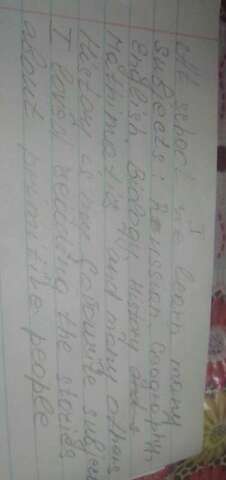 At school we learn many
subjects: Russian, Geography,
English, Biology, History and
Mathimatis and many others
History is my favourite subject
I lovery reading the stories
about primitive people